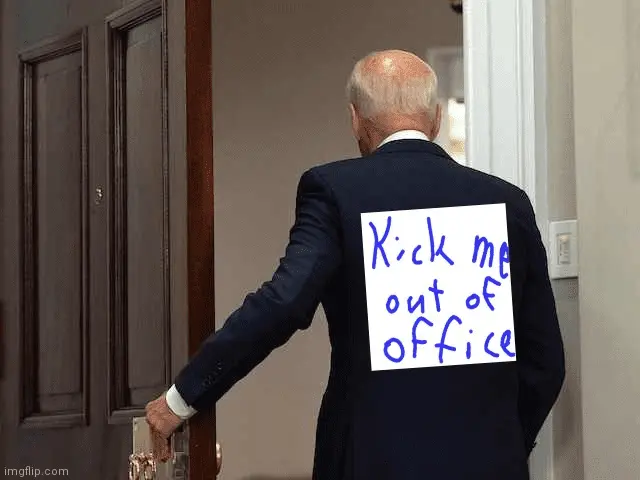 Kick me
out of
office
imgflip.com